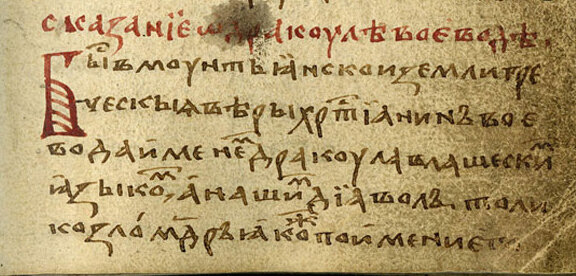 сказанїе ѡ дракоулѣ воєводѣ.
Бы́ въ моунтьꙗнскои земли гре
ческыꙗ вѣры хрⷭ҇тїанинъ воє
вода именеⷨ дракоула влашескиⷨ
ꙗзыкоⷨ, а нашиⷨ дїаволъ. толи
ко зломⷣръ ꙗкоⷤ по имени еⷢ